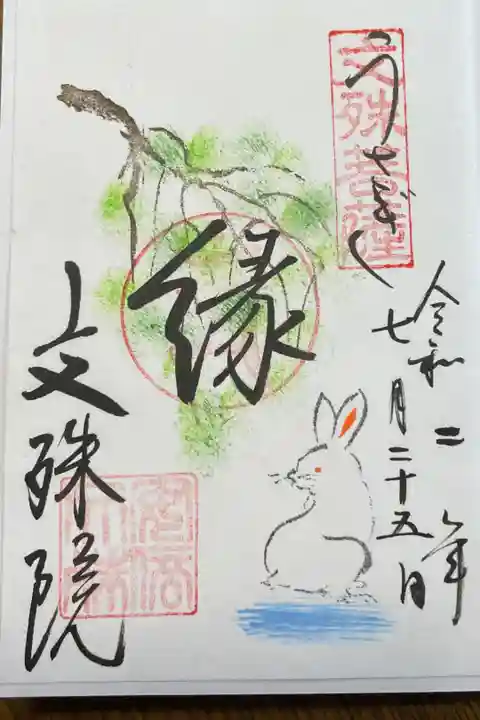 うさぎ
文殊菩薩
令和二年
七月二十五日
縁
上文殊院